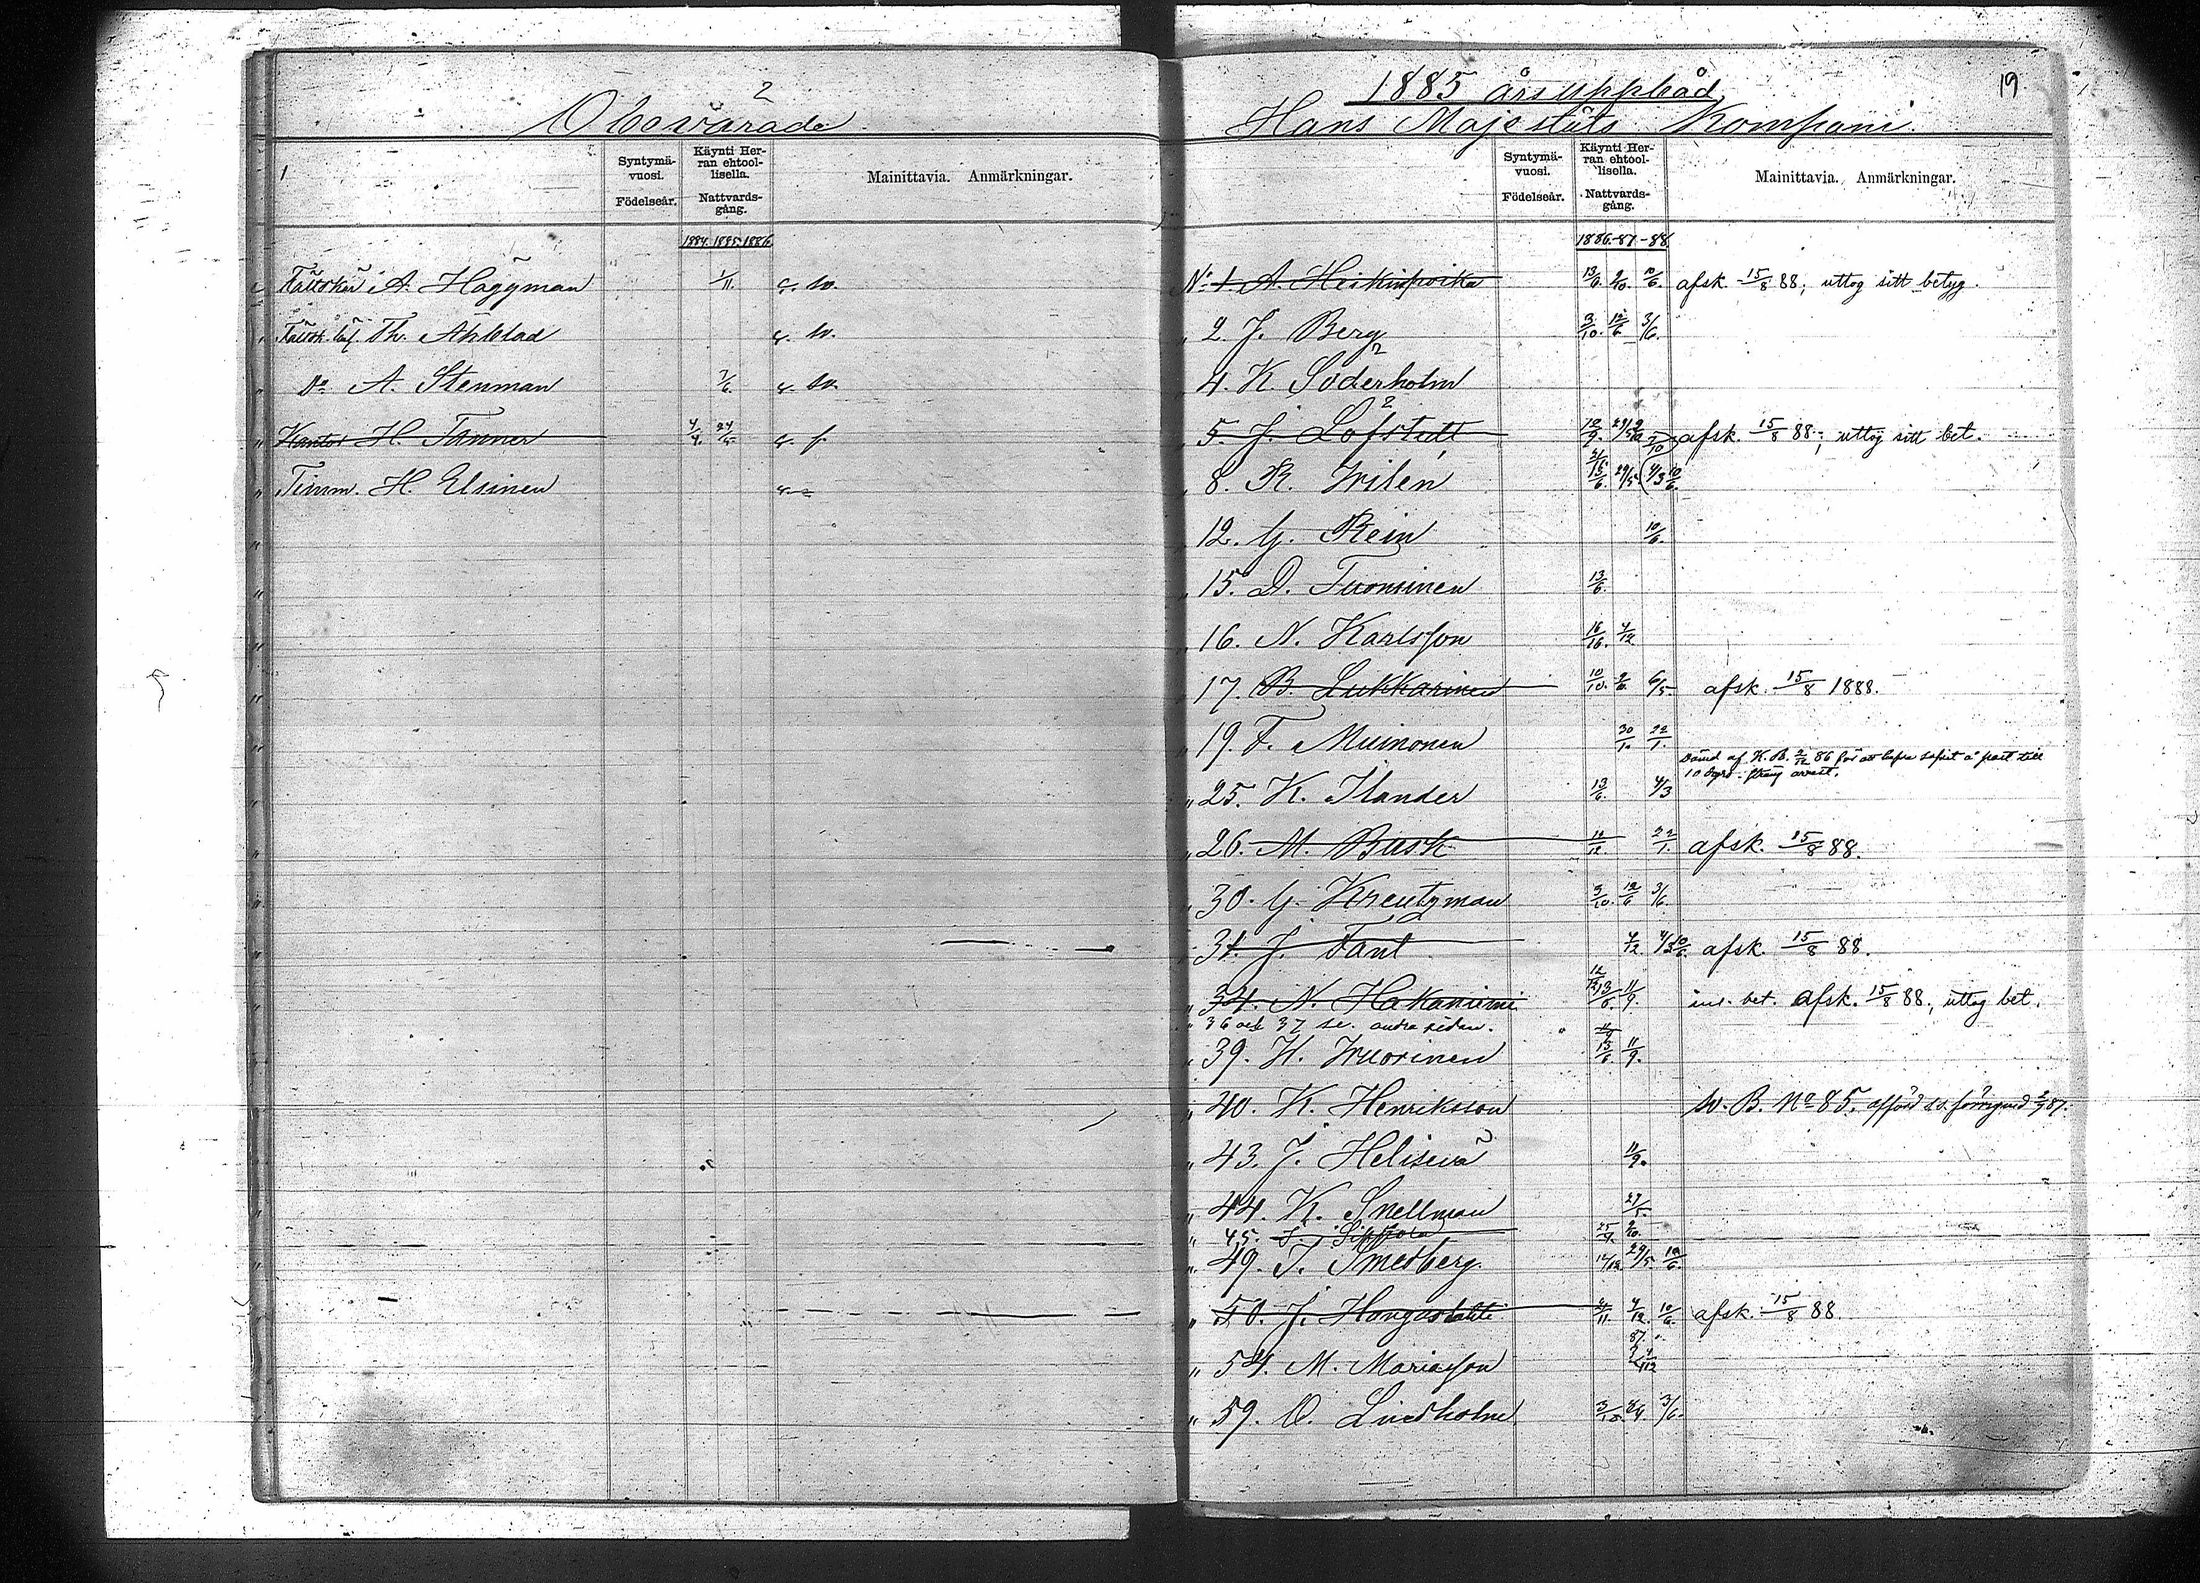 2
Obevärade
1
Syntymä-
vuosi.
Födelseår.
Käynti Her-
ran ehtool-
lisella.
Nattvards-
gång.
Mainittavia. Anmärkningar.
1884. 1885. 1886.
Fältskär A. Häggman 1/11 sv.
Th. Åhlblad sv.
Do A. Stenman 7/6 sv.
Kantor H. Tanner 4/4. 24/5 f.
Timm. H. Elsinen
1885 årsuppbåd
19
Hans Majestäts Kompani
Syntymä-
vuosi.
Födelseår.
Käynti Her-
ran ehtool-
lisella.
Nattvards-
gång.
Mainittavia. Anmärkningar.
1886.-87.-88
No 1. A. Heikinpoika 13/6. 2/10. 10/6. afsk. 15/8 88; uttog sitt betyg.
" 2. J. Berg 3/10. 12/6 3/6.
" 4. K. Söderholm
" 5. J. Löfstedt afsk. 15/8 88; uttog sitt bet.
" 8. R. Wilén 29/5 4/3 10/6.
" 12. G. Rein 10/6.
" 15. D. Tuominen 13/6.
" 16. N. Karlsson 4/12
" 17. B. Lukkarinen 10/10. 6/5 afsk. 15/8 1888.
" 19. F. Muinonen 30/1. 22/1.
Dömd af K. B. 2/12 86 för att
" 25. K. Ilander 13/6. 4/3 10 arrest.
" 26. M. Busk 12/12. 22/1. afsk. 15/8 88.
" 30. G. Kreutzman 3/10. 12/6 3/6.
" 31. J. Fant 4/12. 4/3 10/6. afsk. 15/8 88.
" 34. N. Hakaniemi 13/6 11/9. bet. afsk. 15/8 88, uttog bet.
" 36 och 37 se andra sidan.
" 39. H. Wuorinen 13/6. 11/9.
" 40. K. Henriksson sv. B. No 85.
" 43. J. Helisevä 11/9.
" 44. K. Snellman
" 45. J. Sippola 25/9. 2/10.
" 49. J. Smedberg 12/12 29/5. 10/6.
" 50. J. Hongaslahti 4/12. 10/6. afsk. 15/8 88.
87.
" 54. M. Mariasson
" 59. O. Lindholm 3/10. 3/6.